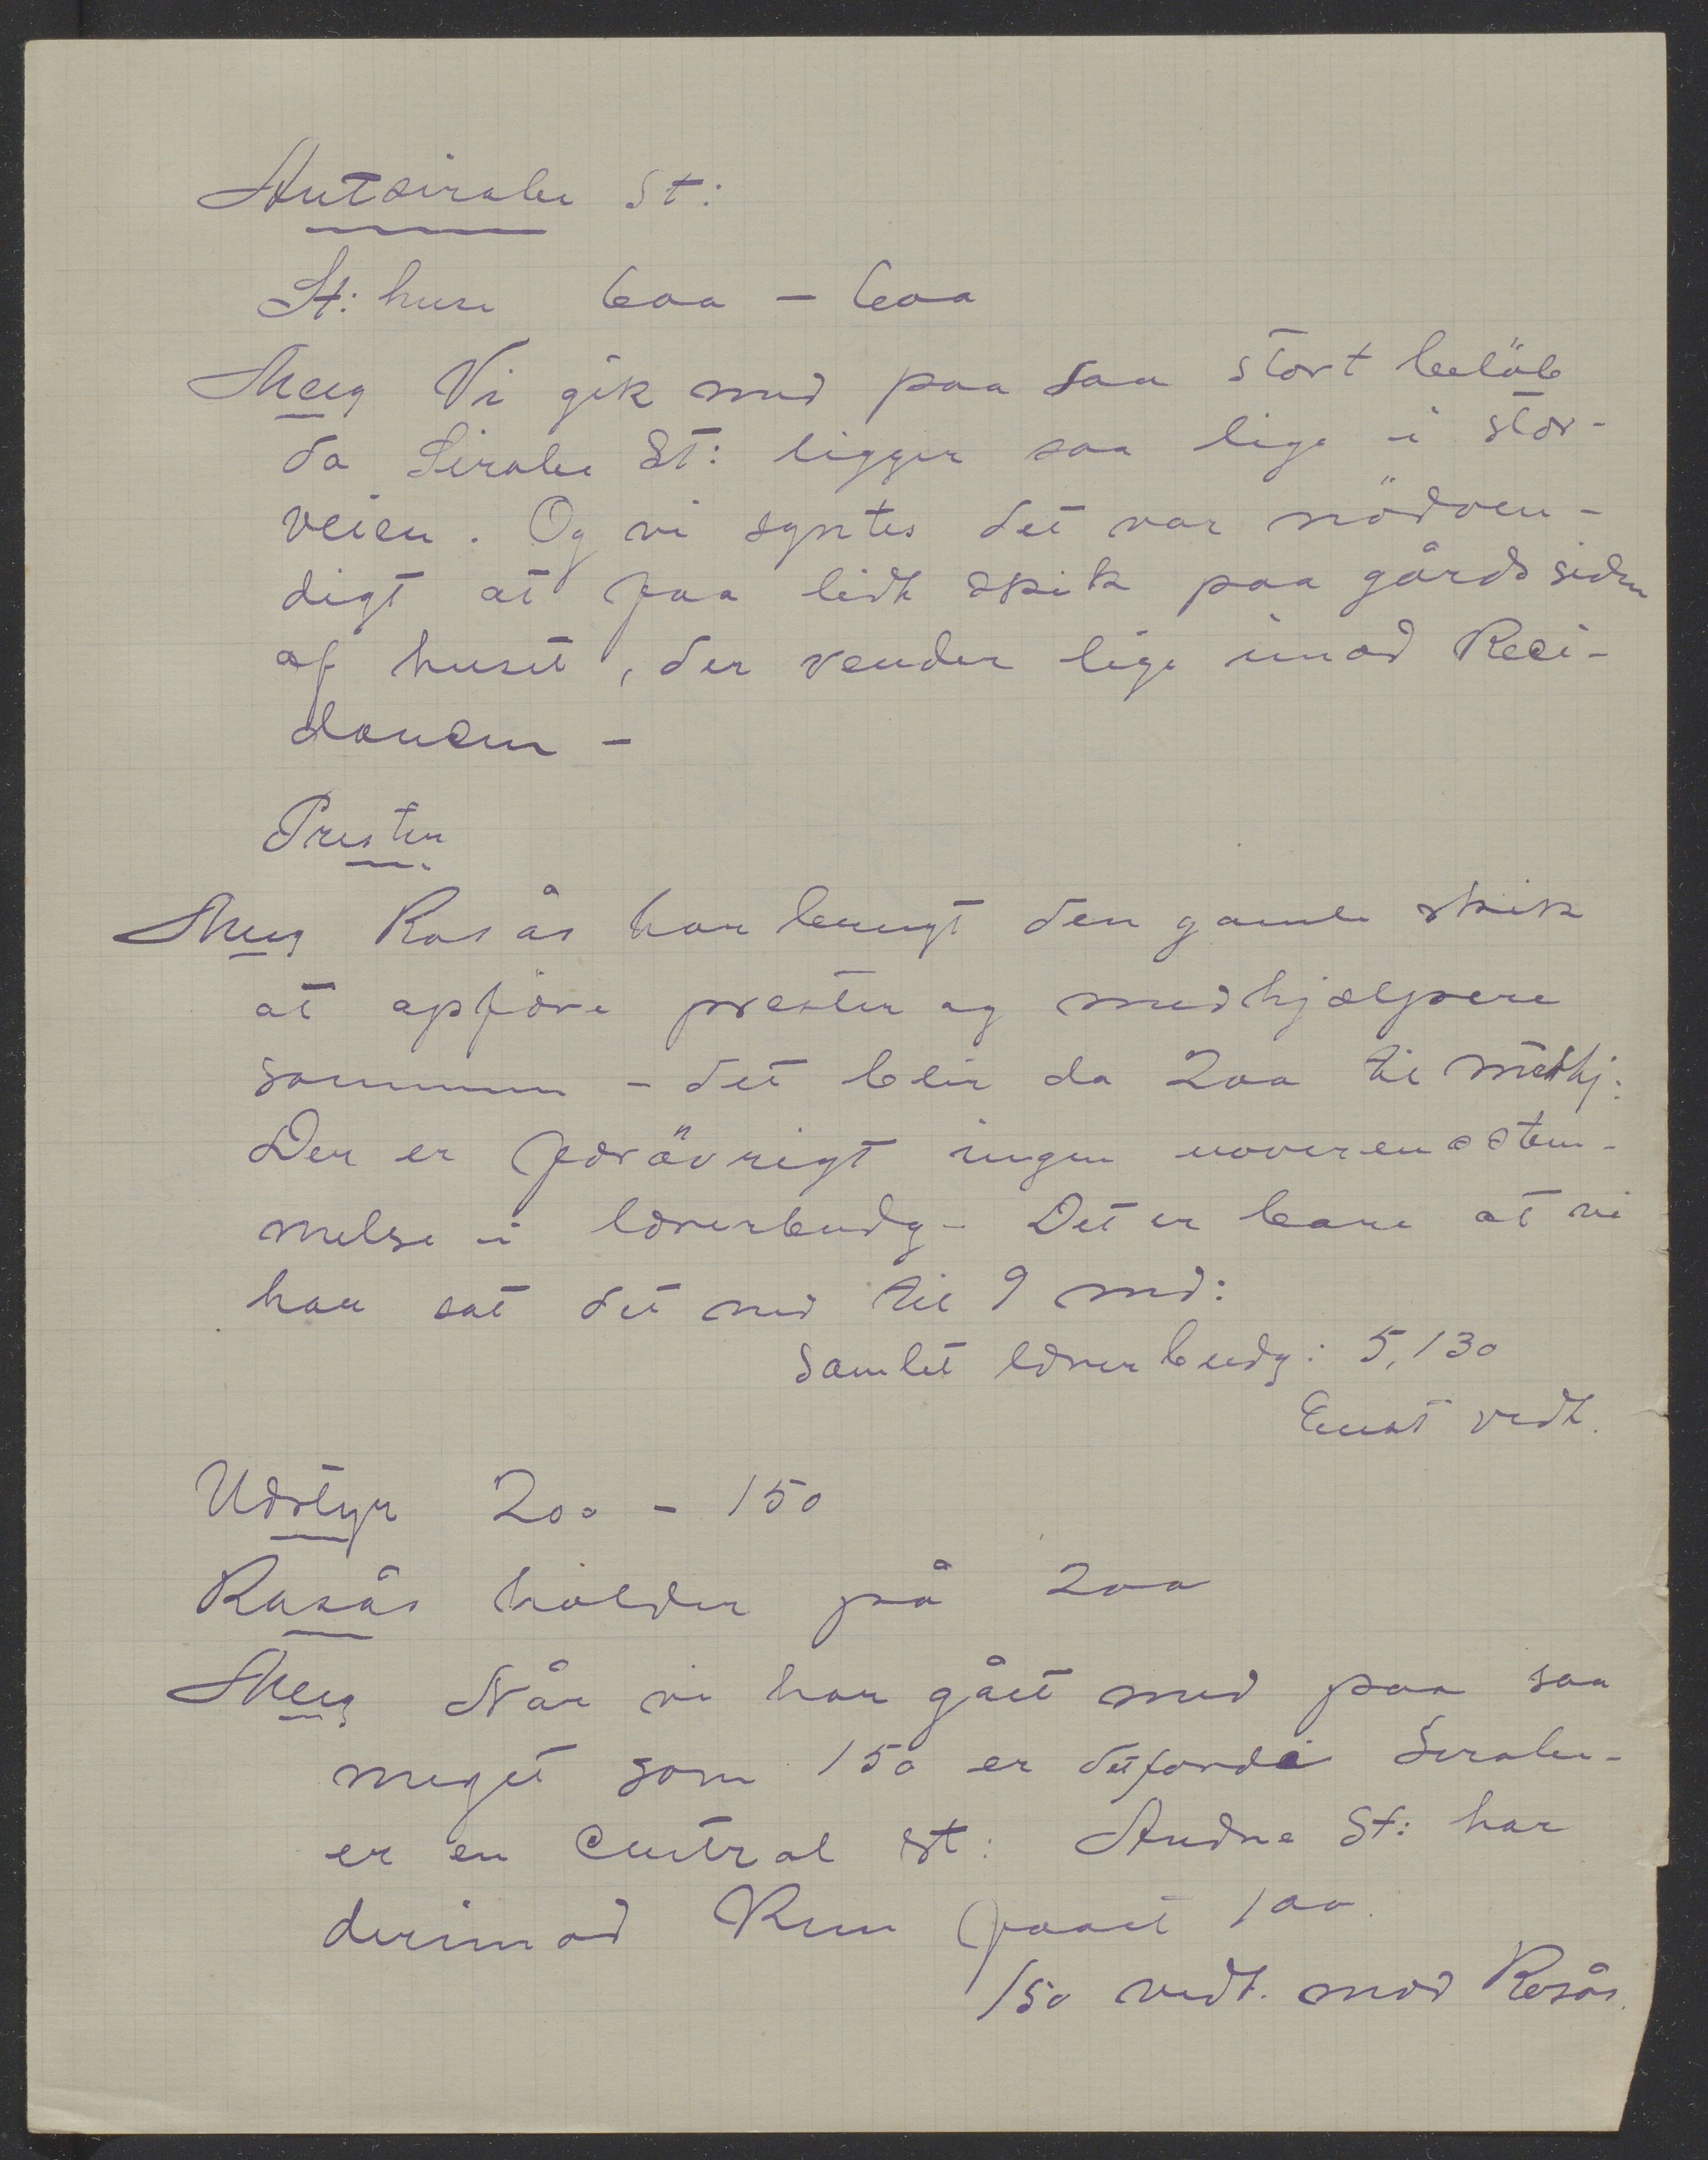 Antsirabe St:
St: huse 600 – 600
Meeg Vi gik med paa saa stort beløb
da Sirabe St: ligger saa lige i stor-
veien. Og vi syntes det var nödven-
digt at faa lidt skik paa gårdssiden
af huset, der vender lige imod Resi-
dancen –
Prester
Meeg Rosås har benyt den gamle skik
at opföre prester og medhjælpere
sammen – det blir da 200 til medhj:
Der er forövrigt ingen uoverensstem-
melse i lærerbudg – Det er bare at vi
har sat det ned til 9 md:
Samlet lærerbudg: 5,130
Enst vedt.
Udstyr 200 – 150
Rosås holder på 200
Meeg Når vi har gået med paa saa
meget som 150 er det fordi Sirabe-
er en Central st: Andre St: har
derimod kun faaet 100.
150 vedt. mod Rosås.